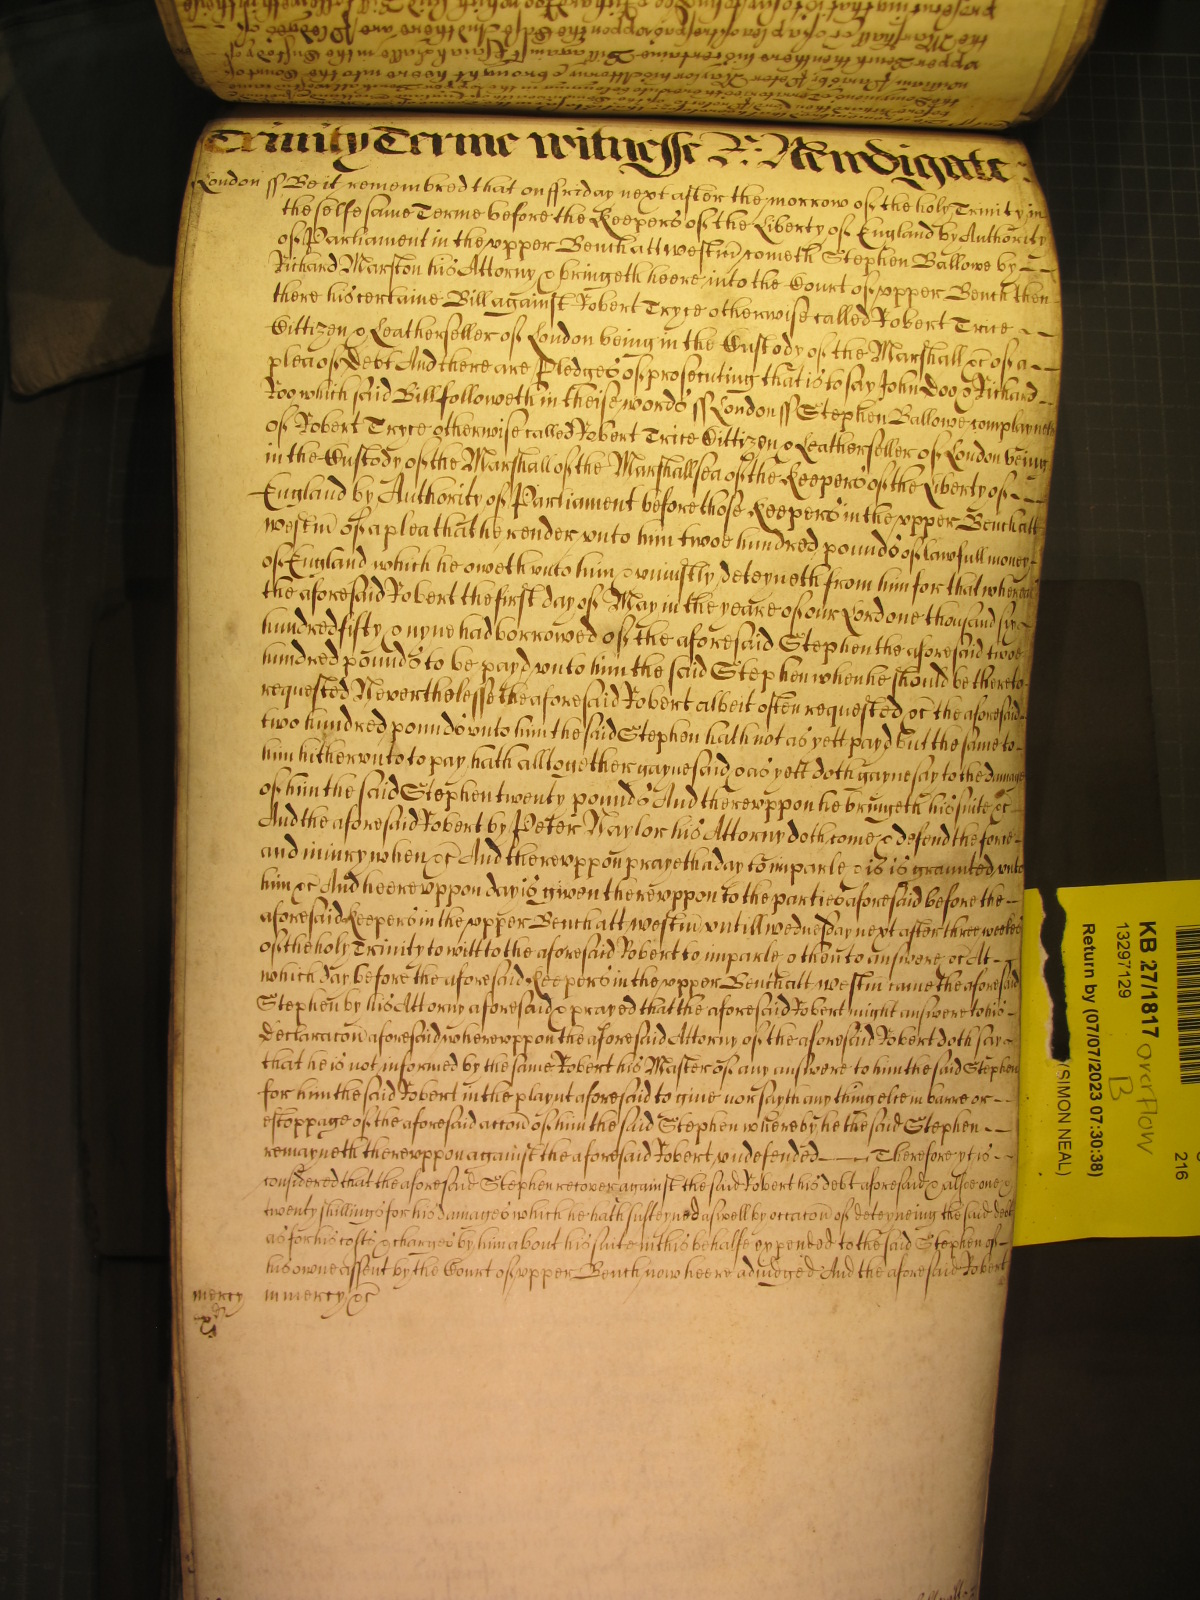 Trinity Terme witnesse R: Newdigate:
London ss Be it remembred that on ffriday next after the morrow of the holy Trinity in
the selfe same Terme before the Keepers of the Liberty of England by Authority
of Parliament in the vpper Bench att westm cometh Stephen Ballowe by
Richard Marston his Attorny & bringeth heere into the Court of vpper Bench then
there his certaine Bill against Robert Tryce otherwise called Robert Trice
Cittizen & Leatherseller of London being in the Custody of the Marshall &c of a
plea of Debt And there are Pledges of prosecuting that is to say John Doo & Richard
Roo which said Bill followeth in theise words ss London ss Stephen Ballowe complayneth
of Robert Tryce otherwise called Robert Trice Cittizen & Leatherseller of London being
in the Custody of the Marshall of the Marshallsea of the Keepers of the Liberty of
England by Authority of Parliament before those Keepers in the vpper Bench att
westm of a plea that he render vnto him twoe hundred pounds of lawfull money
of England which he oweth vnto him & vniustly deteyneth from him for that whereas
the aforesaid Robert the first day of May in the yeare of our Lord one thousand six
hundred fifty & nyne had borrowed of the aforesaid Stephen the aforesaid twoe
hundred pounds to be payd vnto him the said Stephen when he should be thereto
requested Neverthelesse the aforesaid Robert albeit often requested &c the aforesaid
two hundred pounds vnto him the said Stephen hath not as yett payd but the same to
him hitherunto to pay hath alltogether gaynesaid & as yett doth gaynesay to the damage
of him the said Stephen twenty pounds And therevppon he bringeth his suite &c
And the aforesaid Robert by Peter Naylor his Attorny doth come & defend the force
and iniury when &c And therevppon prayeth a day to imparle & it is graunted vnto
him &c And heerevppon day is given therevppon to the parties aforesaid before the
aforesaid Keepers in the vpper Bench att westm vntill wednesday next after three weekes
of the holy Trinity to witt to the aforesaid Robert to imparle & then to answere &c Att
which day before the aforesaid Keepers in the vpper Bench att westm came the aforesaid
Stephen by his Attorny aforesaid & prayed that the aforesaid Robert might answere to his
declaracon aforesaid wherevppon the aforesaid Attorny of the aforesaid Robert doth say
that he is not informed by the same Robert his Master of any answere to him the said Stephen
for him the said Robert in the playnt aforesaid to give nor sayth any thing else in barre or
estoppage of the aforesaid accon of him the said Stephen whereby he the said Stephen
remayneth therevppon against the aforesaid Robert vndefended Therefore yt is
considered that the aforesaid Stephen recover against the said Robert his debt aforesaid & alsoe one &
twenty shillings for his damages which he hath susteyned aswell by occacon of deteyneing the said debt
as for his costs & charges by him about his suite in this behalfe expended to the said Stephen of
his owne assent by the Court of vpper Bench now heere adiudged And the aforesaid Robert
mercy in mercy &c
KB 27/1817 overflow
B
13297129
Return by (07/07/2023 07:30:38)
(SIMON NEAL)
216